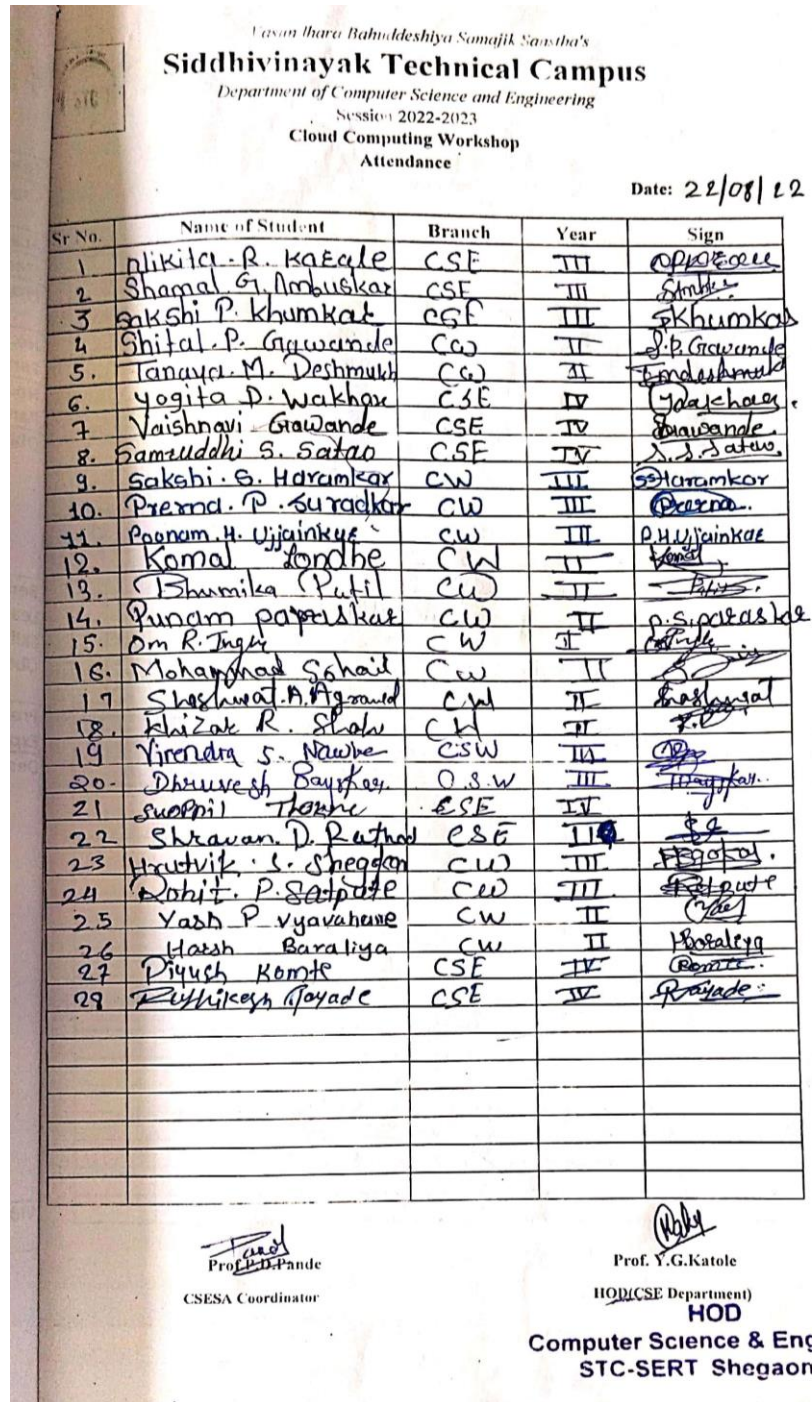 Vasundhara Bahuddeshiya Samajik Sanstha's
Siddhivinayak Technical Campus
Department of Computer Science and Engineering
Session 2022-2023
Cloud Computing Workshop
Attendance
STC
Date: 22/08/22
Sr No. Name of Student Branch Year Sign
1 Nikita. R. Kaegle CSE III
2 Shamal G. Ambuskar CSE III
3 Sakshi P. Khumkar CSE III SKhumkar
4 Shital. P. Gawande CW II S.P. Gawande
5. Tanaya. M. Deshmukh CW II Tmdeshmukh
6. Yogita D. Wakhare CSE IV
7 Vaishnavi Gawande CSE IV Gawande.
8. Samruddhi S. Satao CSE IV S. S. Satao
9. Sakshi. S. Haramkar CW III SSHaramkar
10. Prerna. P. Suradkar CW III Prerna.
11. Poonam. H. Ujjainkar CW III P.H.Ujjainkar
12. Komal Londhe CW II Komal
13. Bhumika Patil CW II
14. Punam paraskar CW II P.S.paraskar
15. Om R. Ingle CW II
16. Mohammad Sohail CW II
17 Shashwat.A.Agrawal CW II Shashwat
18. Khizar R. Shah CW II
19 Virendra S. CSW III
20. Dhruvesh Bayskar O.S.W III Bayskar.
21 CSE IV
22 Shravan. D. Rathod CSE II
23 Hrutvik. S. Shegokar CW III
24 Rohit. P. Satpute CW III Satpute
25 Yash P vyavahare CW II
26 Harsh Baraliya CW II HBaraliya
27 Piyush Komte CSE IV Komte.
28 Rushikesh Gayade CSE IV
Prof.P.D.Pande Prof. Y.G.Katole
CSESA Coordinator HOD(CSE Department)
HOD
Computer Science & Eng
STC-SERT Shegaon